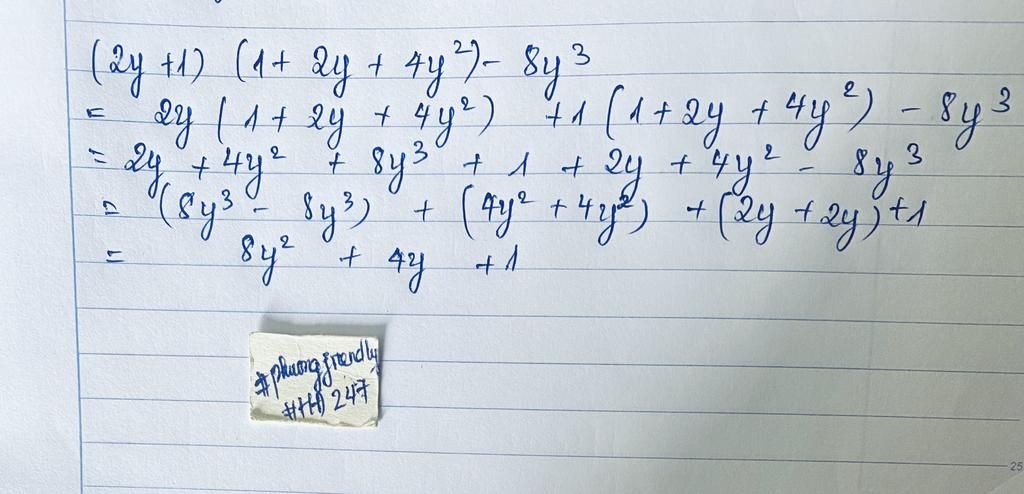 (2y+1) (1+ 2y + 4y²) - 8y³
= 2y (1 + 2y + 4y²) +1 (1 + 2y + 4y²) - 8y³
= 2y + 4y² + 8y³ + 1 + 2y + 4y² - 8y³
= (8y³ - 8y³) + (4y² + 4y²) + (2y + 2y) +1
= 8y² + 4y +1
#phuongfriendly
247
25